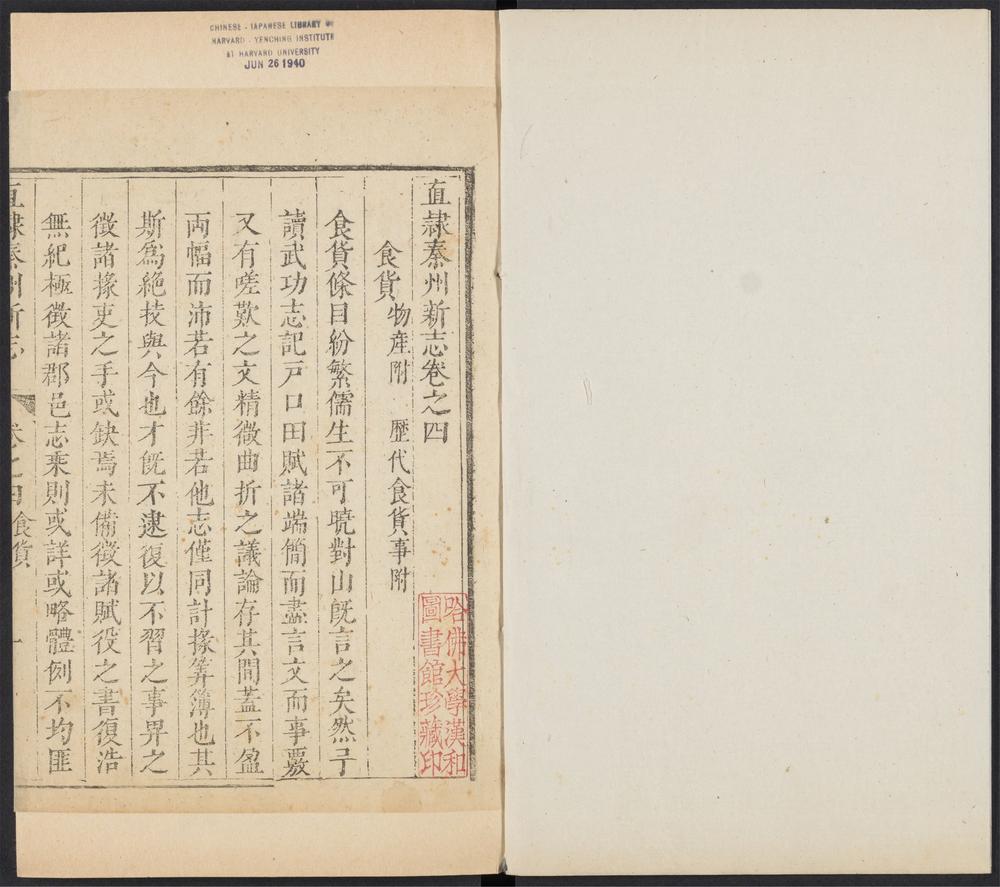 CHINESE - JAPANESE LIBRARY OF
HARVARD - YENCHING INSTITUTE
AT HARVARD UNIVERSITY
JUN 26 1940
直隷秦州新志卷之四
食貨 物產附 歷代食貨事附
食貨條目紛繁儒生不可曉對山旣言之矣然予
讀武功志記戸口田賦諸端簡而盡言文而事覈
又有嗟歎之文精微曲折之議論存其間蓋不盈
兩幅而沛若有餘非若他志僅同計掾筭簿也其
斯爲絶技與今也才旣不逮復以不習之事畀之
徵諸掾吏之手或缺焉未備徵諸賦役之書復浩
無紀極徵諸郡邑志乘則或詳或略體例不均匪
直隷秦州新志 卷之四 食貨 一
哈佛大學漢和
圖書館珍藏印